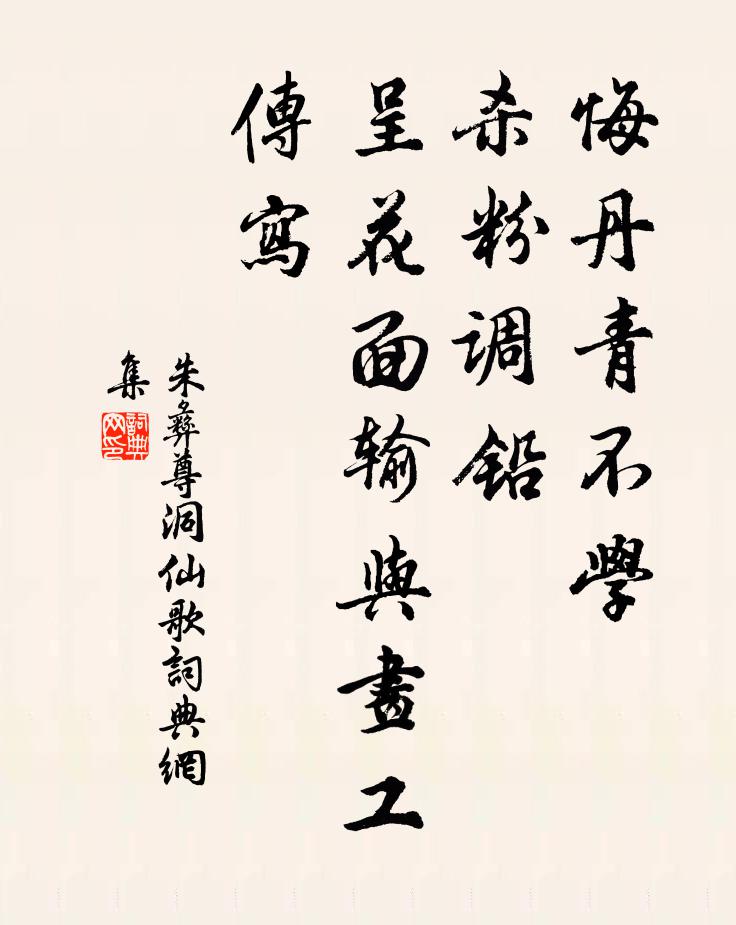 悔丹青不學
杀粉调鉛
呈花面输與畫工
傳寫
朱彝尊洞仙歌詞典網
集
詞典
网印